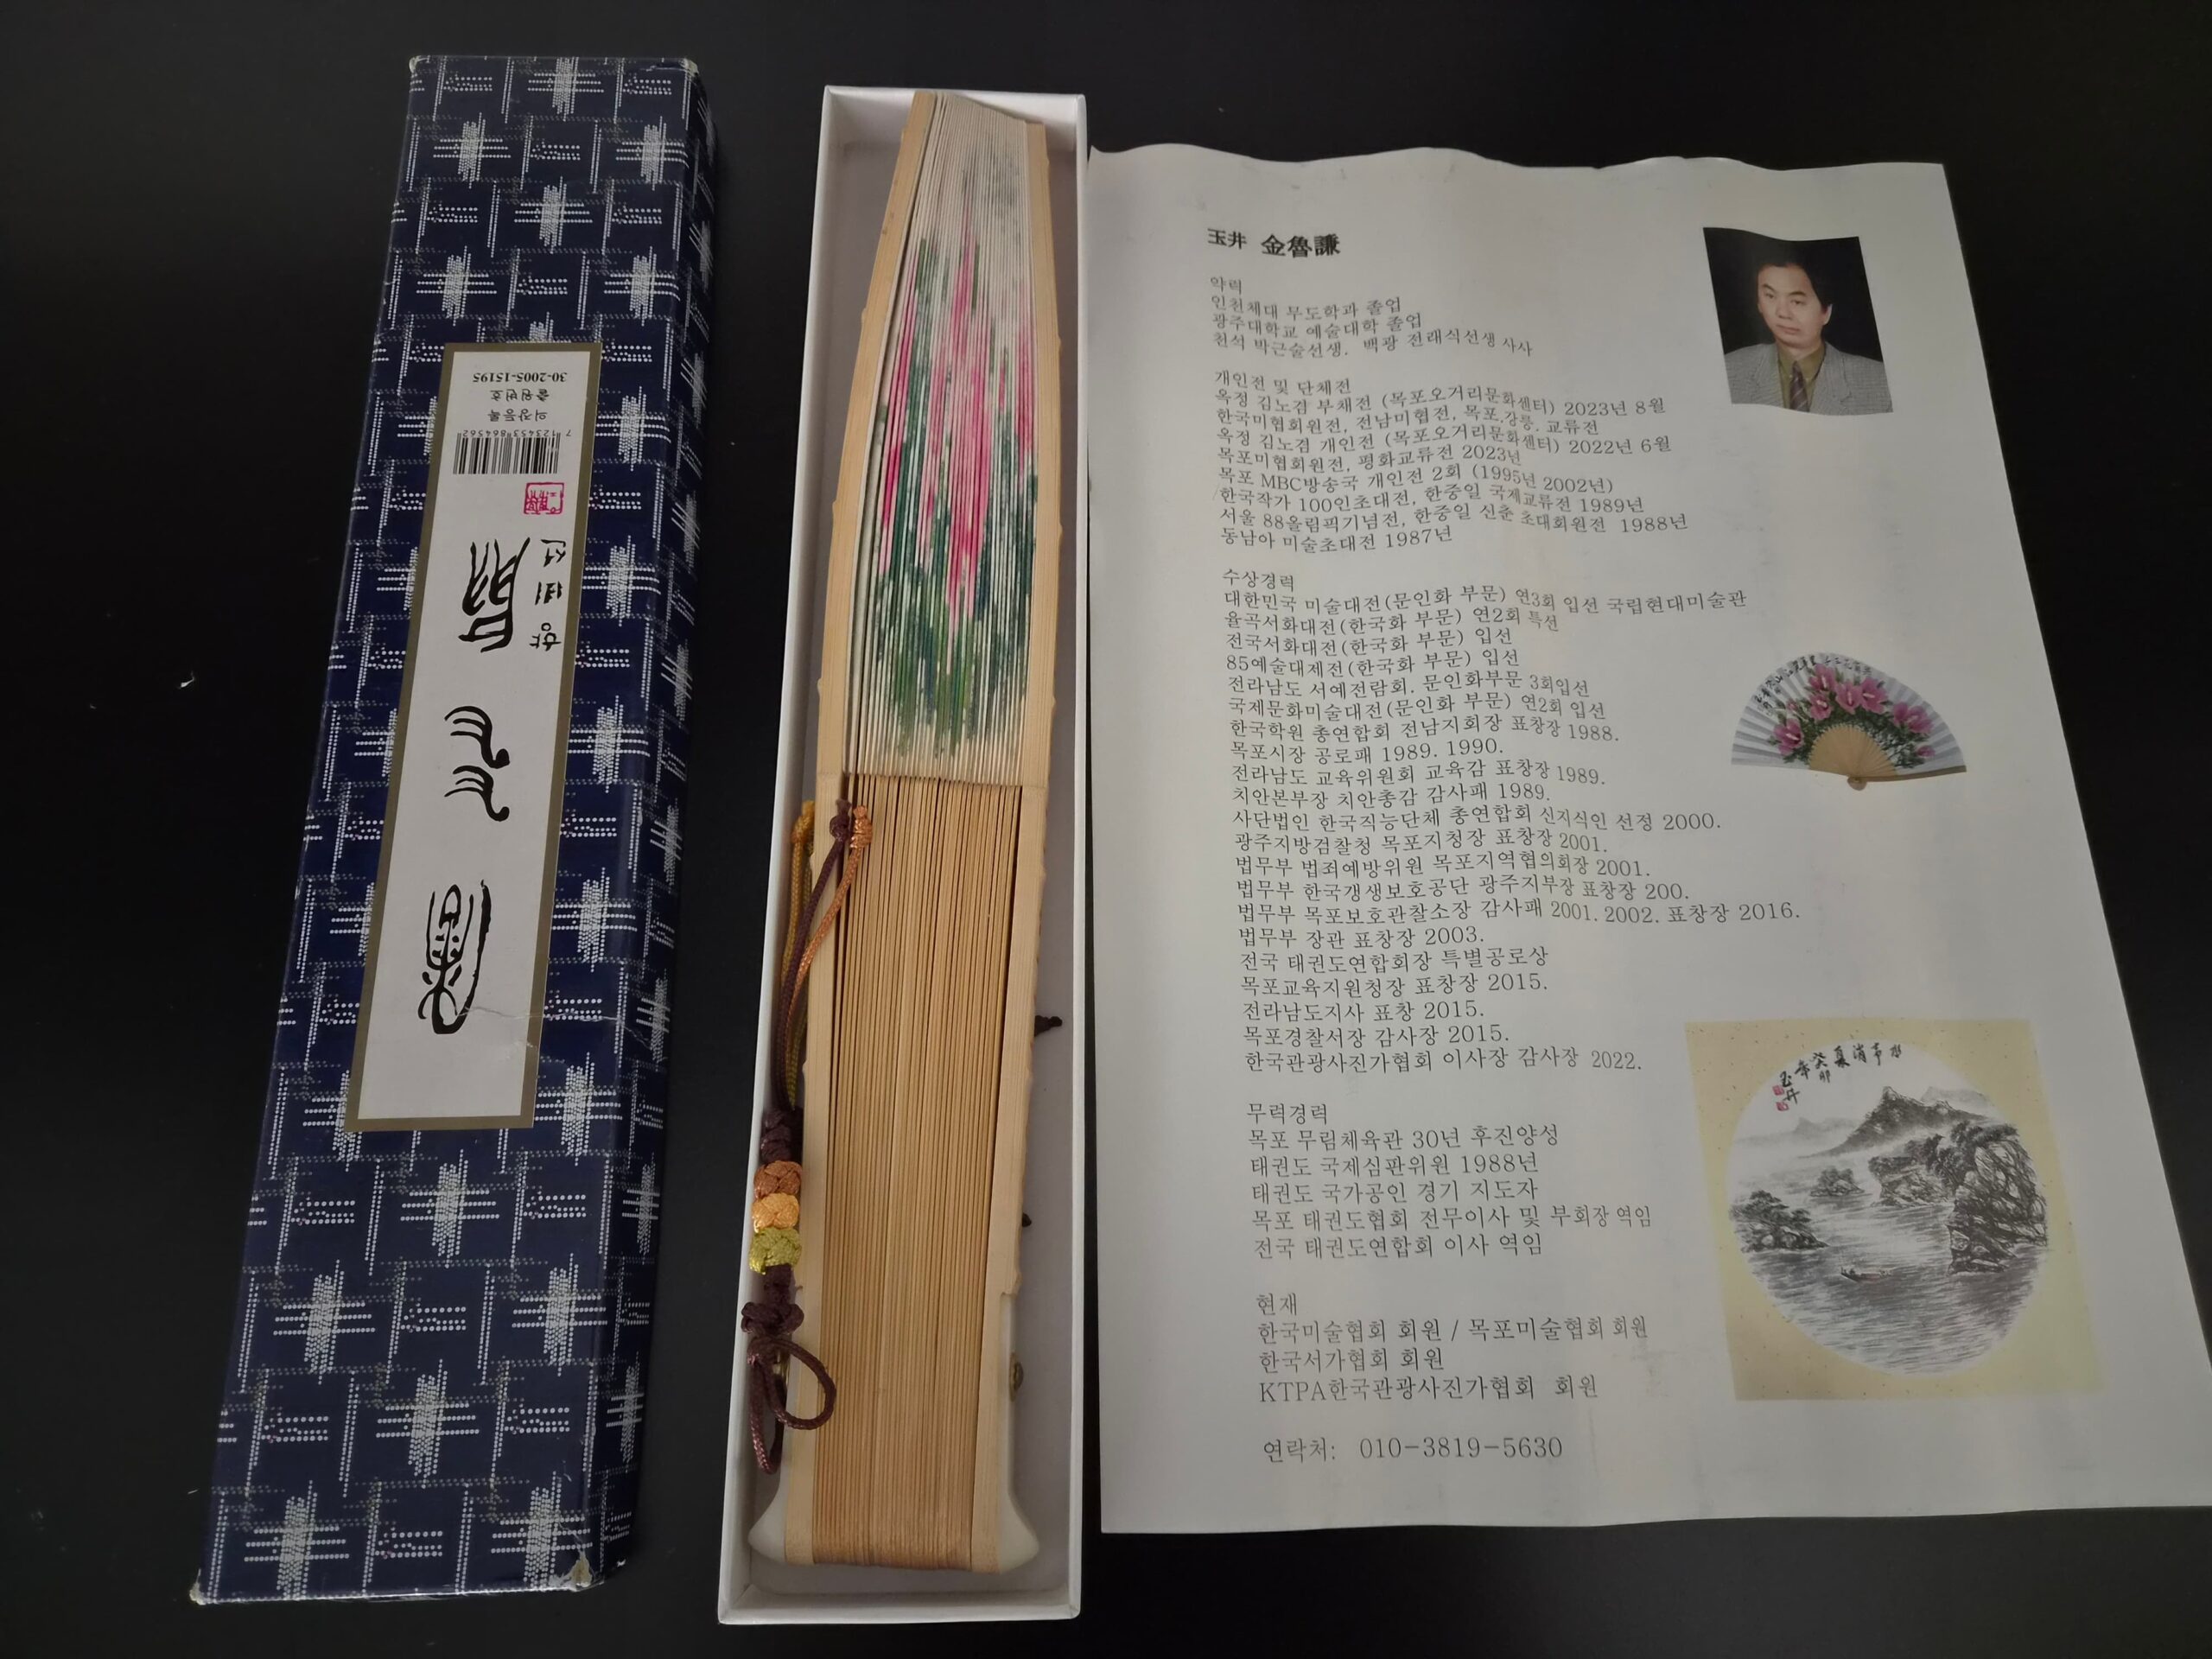 30-2005-15195
출원번호
의장등록
7 123453 864562
선비향
玉井 金魯謙
약력
인천체대 무도학과 졸업
광주대학교 예술대학 졸업
천석 박근술선생. 백광 전래식선생 사사
개인전 및 단체전
옥정 김노겸 부채전 (목포오거리문화센터) 2023년 8월
한국미협회원전, 전남미협전, 목포.강릉. 교류전
옥정 김노겸 개인전 (목포오거리문화센터) 2022년 6월
목포미협회원전, 평화교류전 2023년
목포 MBC방송국 개인전 2회 (1995년 2002년)
한국작가 100인초대전, 한중일 국제교류전 1989년
서울 88올림픽기념전, 한중일 신춘 초대회원전 1988년
동남아 미술초대전 1987년
수상경력
대한민국 미술대전(문인화 부문) 연3회 입선 국립현대미술관
율곡서화대전(한국화 부문) 연2회 특선
전국서화대전(한국화 부문) 입선
85예술대제전(한국화 부문) 입선
전라남도 서예전람회. 문인화부문 3회입선
국제문화미술대전(문인화 부문) 연2회 입선
한국학원 총연합회 전남지회장 표창장 1988.
목포시장 공로패 1989. 1990.
전라남도 교육위원회 교육감 표창장 1989.
치안본부장 치안총감 감사패 1989.
사단법인 한국직능단체 총연합회 신지식인 선정 2000.
광주지방검찰청 목포지청장 표창장 2001.
법무부 범죄예방위원 목포지역협의회장 2001.
법무부 한국갱생보호공단 광주지부장 표창장 200.
법무부 목포보호관찰소장 감사패 2001. 2002. 표창장 2016.
법무부 장관 표창장 2003.
전국 태권도연합회장 특별공로상
목포교육지원청장 표창장 2015.
전라남도지사 표창 2015.
목포경찰서장 감사장 2015.
한국관광사진가협회 이사장 감사장 2022.
무력경력
목포 무림체육관 30년 후진양성
태권도 국제심판위원 1988년
태권도 국가공인 경기 지도자
목포 태권도협회 전무이사 및 부회장 역임
전국 태권도연합회 이사 역임
현재
한국미술협회 회원 / 목포미술협회 회원
한국서가협회 회원
KTPA한국관광사진가협회 회원
연락처: 010-3819-5630
玉井